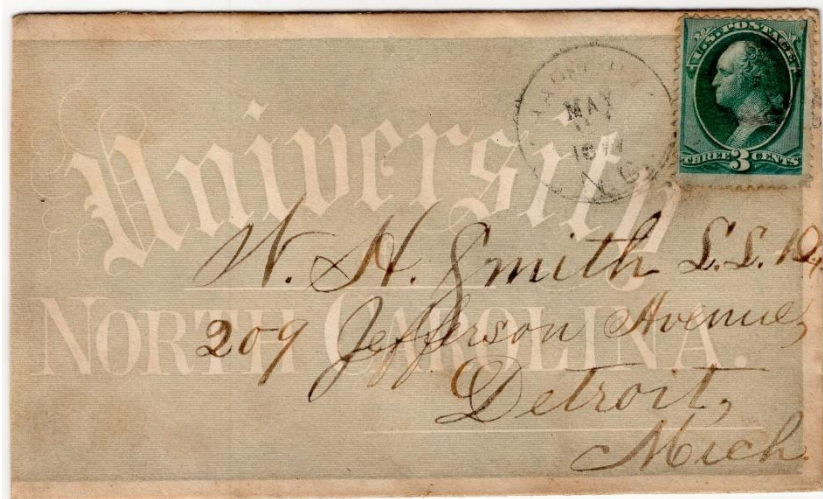 U.S. POSTAGE
THREE 3 CENTS
MAY
N.C.
University
NORTH CAROLINA.
W. H. Smith L.L.D.,
209 Jefferson Avenue,
Detroit,
Mich.